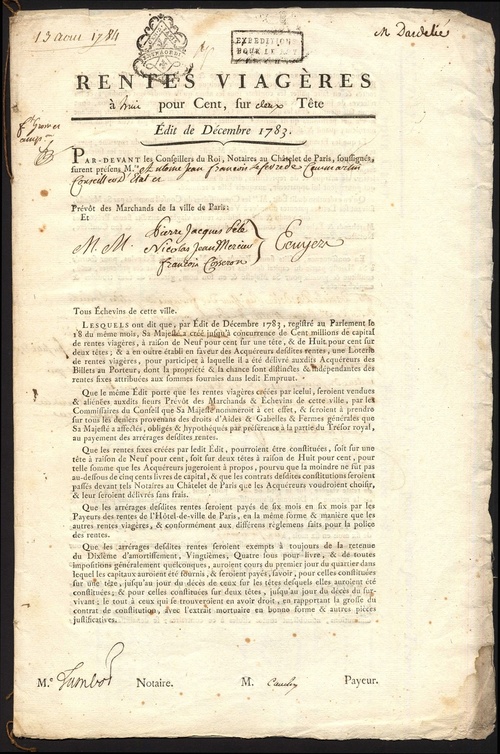 13 Aout 1784
M Dardelié
EXPEDITION
POUR LE
RENTES VIAGÈRES
à huit pour Cent, sur deux Tête
Édit de Décembre 1783.
PAR-DEVANT les Conseillers du Roi, Notaires au Châtelet de Paris, soussignés,
furent présens M.re Antoine Jean François lefevre de Caumartin
Conseiller d'Etat et
Prévôt des Marchands de la ville de Paris:
Et
Pierre Jacques Pelé
M. M. Nicolas Jean Mercier Ecuyers
François Cosseron
Tous Échevins de cette ville.
LESQUELS ont dit que, par Édit de Décembre 1783, registré au Parlement le
18 du même mois, Sa Majesté a créé jusqu'à concurrence de Cent millions de capital
de rentes viagères, à raison de Neuf pour cent sur une tête, & de Huit pour cent sur
deux têtes; & a en outre établi en faveur des Acquéreurs desdites rentes, une Loterie
de rentes viagères, pour participer à laquelle il a été délivré auxdits Acquéreurs des
Billets au Porteur, dont la propriété & la chance sont distinctes & indépendantes des
rentes fixes attribuées aux sommes fournies dans ledit Emprunt.
Que le même Édit porte que les rentes viagères créées par icelui, seroient vendues
& aliénées auxdits sieurs Prévôt des Marchands & Échevins de cette ville, par les
Commissaires du Conseil que Sa Majesté nommeroit à cet effet, & seroient à prendre
sur tous les deniers provenans des droits d'Aides & Gabelles & Fermes générales que
Sa Majesté a affectés, obligés & hypothéqués par préférence à la partie du Trésor royal,
au payement des arrérages desdites rentes.
Que les rentes fixes créées par ledit Édit, pourroient être constituées, soit sur une
tête à raison de Neuf pour cent, soit sur deux têtes à raison de Huit pour cent, pour
telle somme que les Acquéreurs jugeroient à propos, pourvu que la moindre ne fût pas
au-dessous de cinq cents livres de capital, & que les contrats desdites constitutions seroient
passés devant tels Notaires au Châtelet de Paris que les Acquéreurs voudroient choisir,
& leur seroient délivrés sans frais.
Que les arrérages desdites rentes seroient payés de six mois en six mois par les
Payeurs des rentes de l'Hôtel-de-ville de Paris, en la même forme & manière que les
autres rentes viagères, & conformément aux différens règlemens faits pour la police
des rentes.
Que les arrérages desdites rentes seroient exempts à toujours de la retenue
du Dixième d'amortissement, Vingtièmes, Quatre sous pour livre, & de toutes
impositions généralement quelconques, auroient cours du premier jour du quartier dans
lequel les capitaux auroient été fournis, & seroient payés, savoir, pour celles constituées
sur une tête, jusqu'au jour du décès de ceux sur les têtes desquels elles auroient été
constituées; & pour celles constituées sur deux têtes, jusqu'au jour du décès du sur-
vivant; le tout à ceux qui se trouveroient en avoir droit, en rapportant la grosse du
contrat de constitution, avec l'extrait mortuaire en bonne forme & autres pièces
justificatives.
M.e Notaire. M. Payeur.